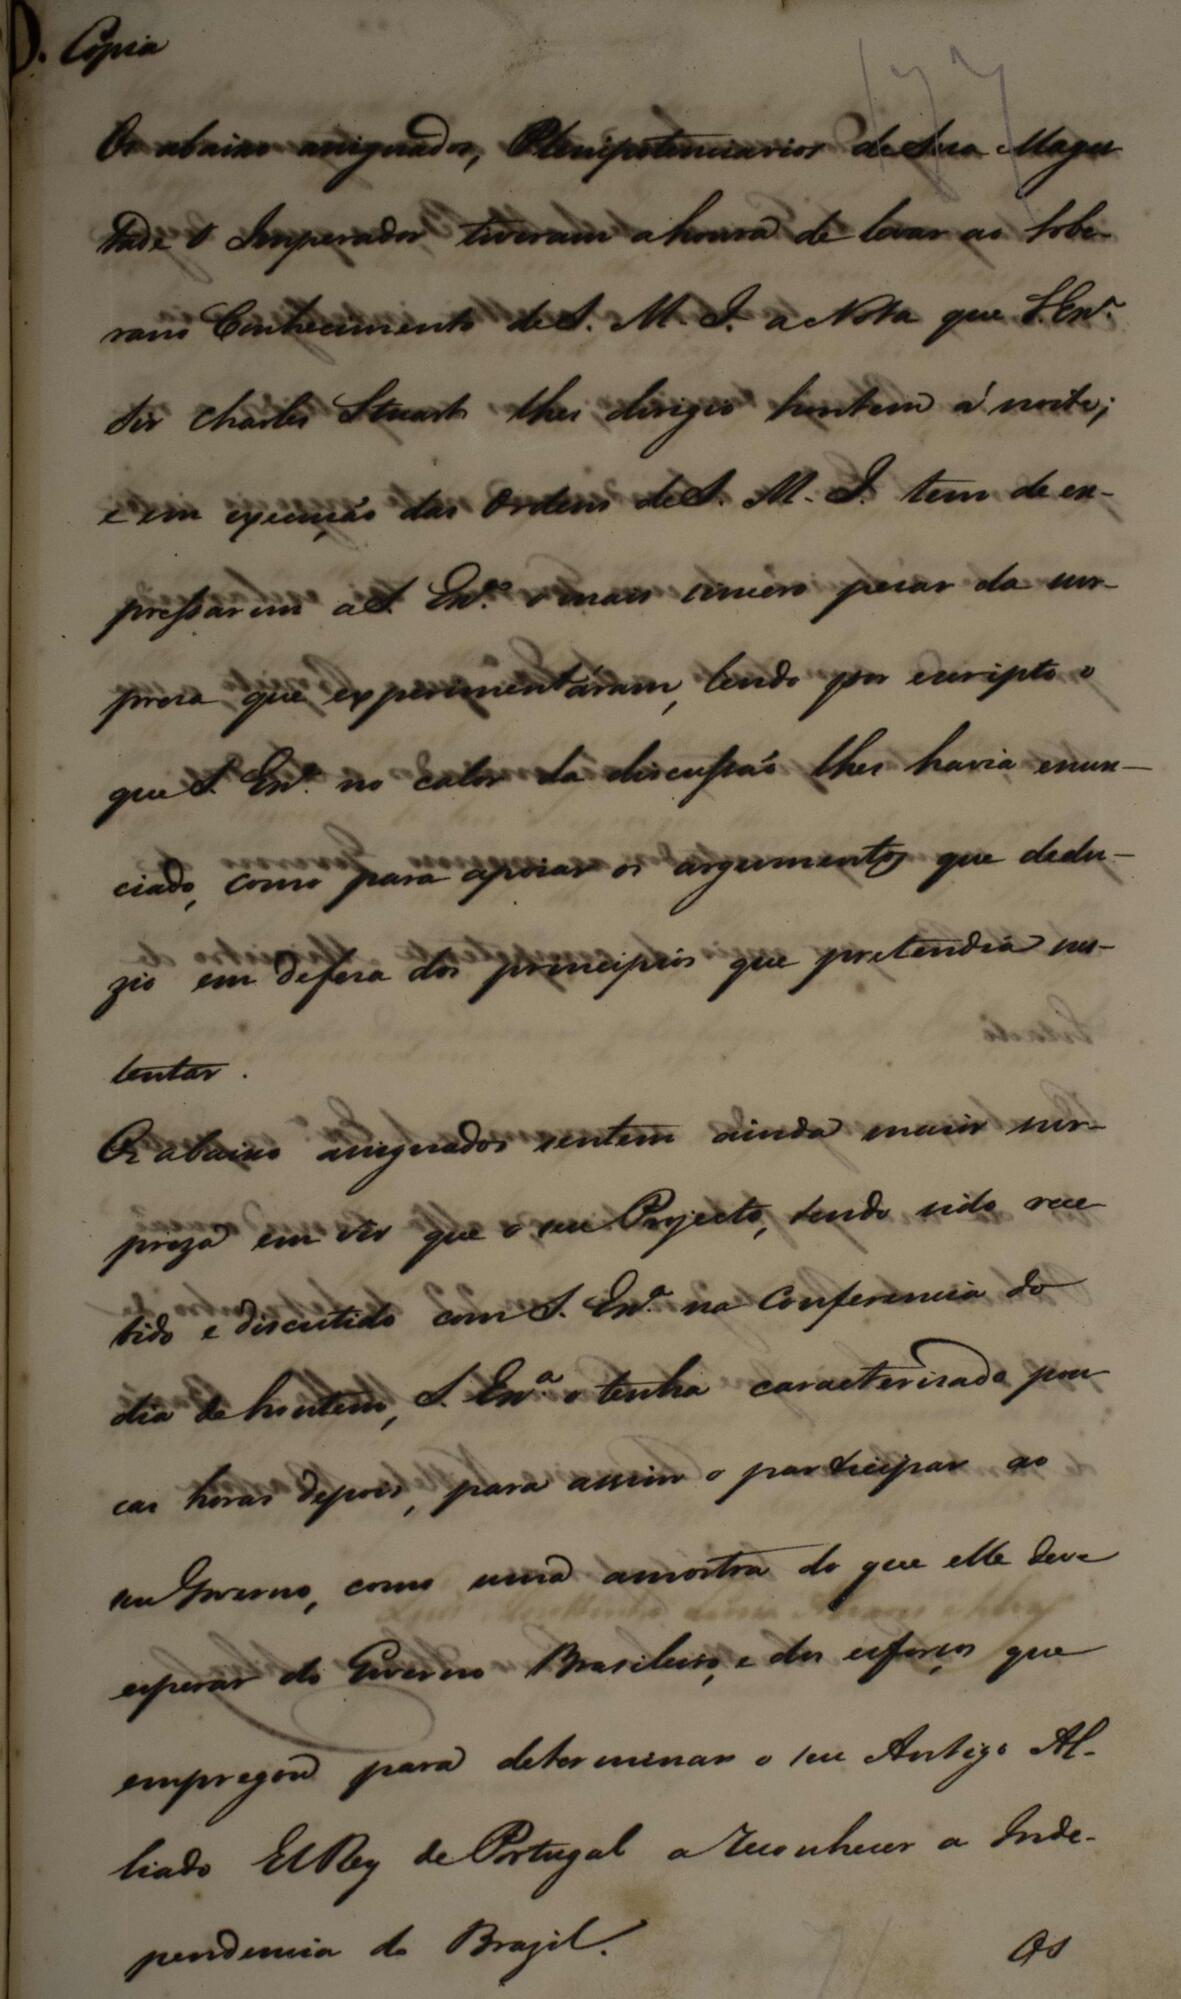 D. Cópia
177
Os abaixo assignados, Plenipotenciarios de Sua Mages
tade O Imperador tiveram a honra de levar ao Sobe-
rano Conhecimento de S. M. I. a Nota que S. Exª.
Sir Charles Stuart lhes dirigio hontem á noite;
e em execução das Ordens de S. M. I. tem de ex-
pressarem a S. Exª. o mais sincero pezar da sur-
preza que experimentáram, lendo por escripto o
que S. Exª. no calor da discussão lhes havia enun-
ciado, como para apoiar os argumentos que dedu-
zio em defesa dos principios que pretendia sus-
tentar.
Os abaixo assignados sentem ainda maior sur-
preza em ver que o seu Projecto, tendo sido rece
bido e discutido com S. Exª. na Conferencia do
dia de hontem, S. Exª o tenha caracterisado pou
cas horas depois, para assim o participar ao
seu Governo, como uma amostra do que elle deve
esperar do Governo Brasileiro, e dos esforços que
empregou para determinar o seu Antigo Al-
liado El Rey de Portugal a reconhecer a Inde-
pendencia do Brazil.
Os